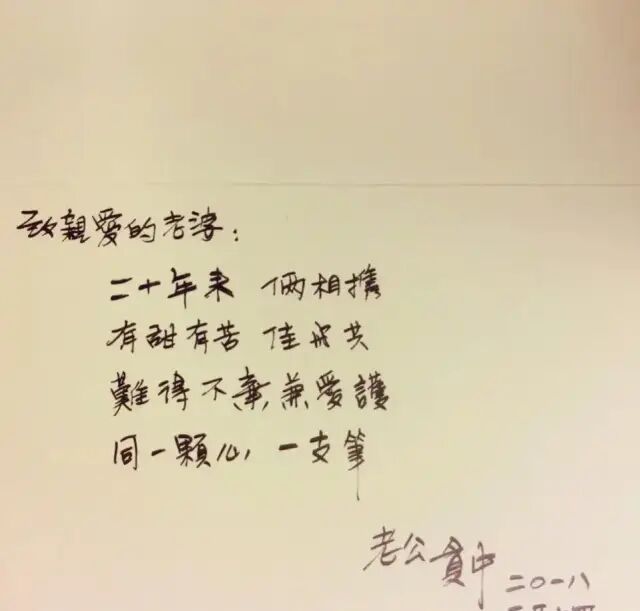 致親愛的老婆：
二十年来 倆相攜
有甜有苦 佳成共
難得不棄兼愛護
同一顆心 一支筆
老公貢中
二〇一八